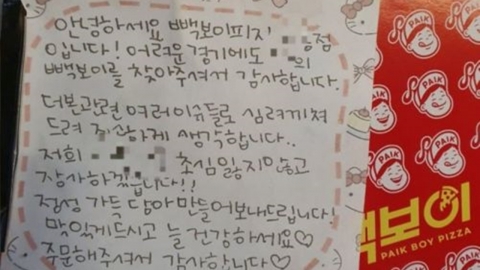 안녕하세요 빽보이피자 점
입니다! 어려운 경기에도 의
빽보이를 찾아주셔서 감사합니다.
더본관련 여러이슈들로 심려끼쳐
드려 죄송하게 생각합니다..
저희 초심잃지않고
장사하겠습니다!!
정성 가득 담아만들어보내드립니다!
맛있게드시고 늘건강하세요♡
주문해주셔서 감사합니다♡
PAIK
PAIK
PAIK
PAIK
빽보이
PAIK BOY PIZZA